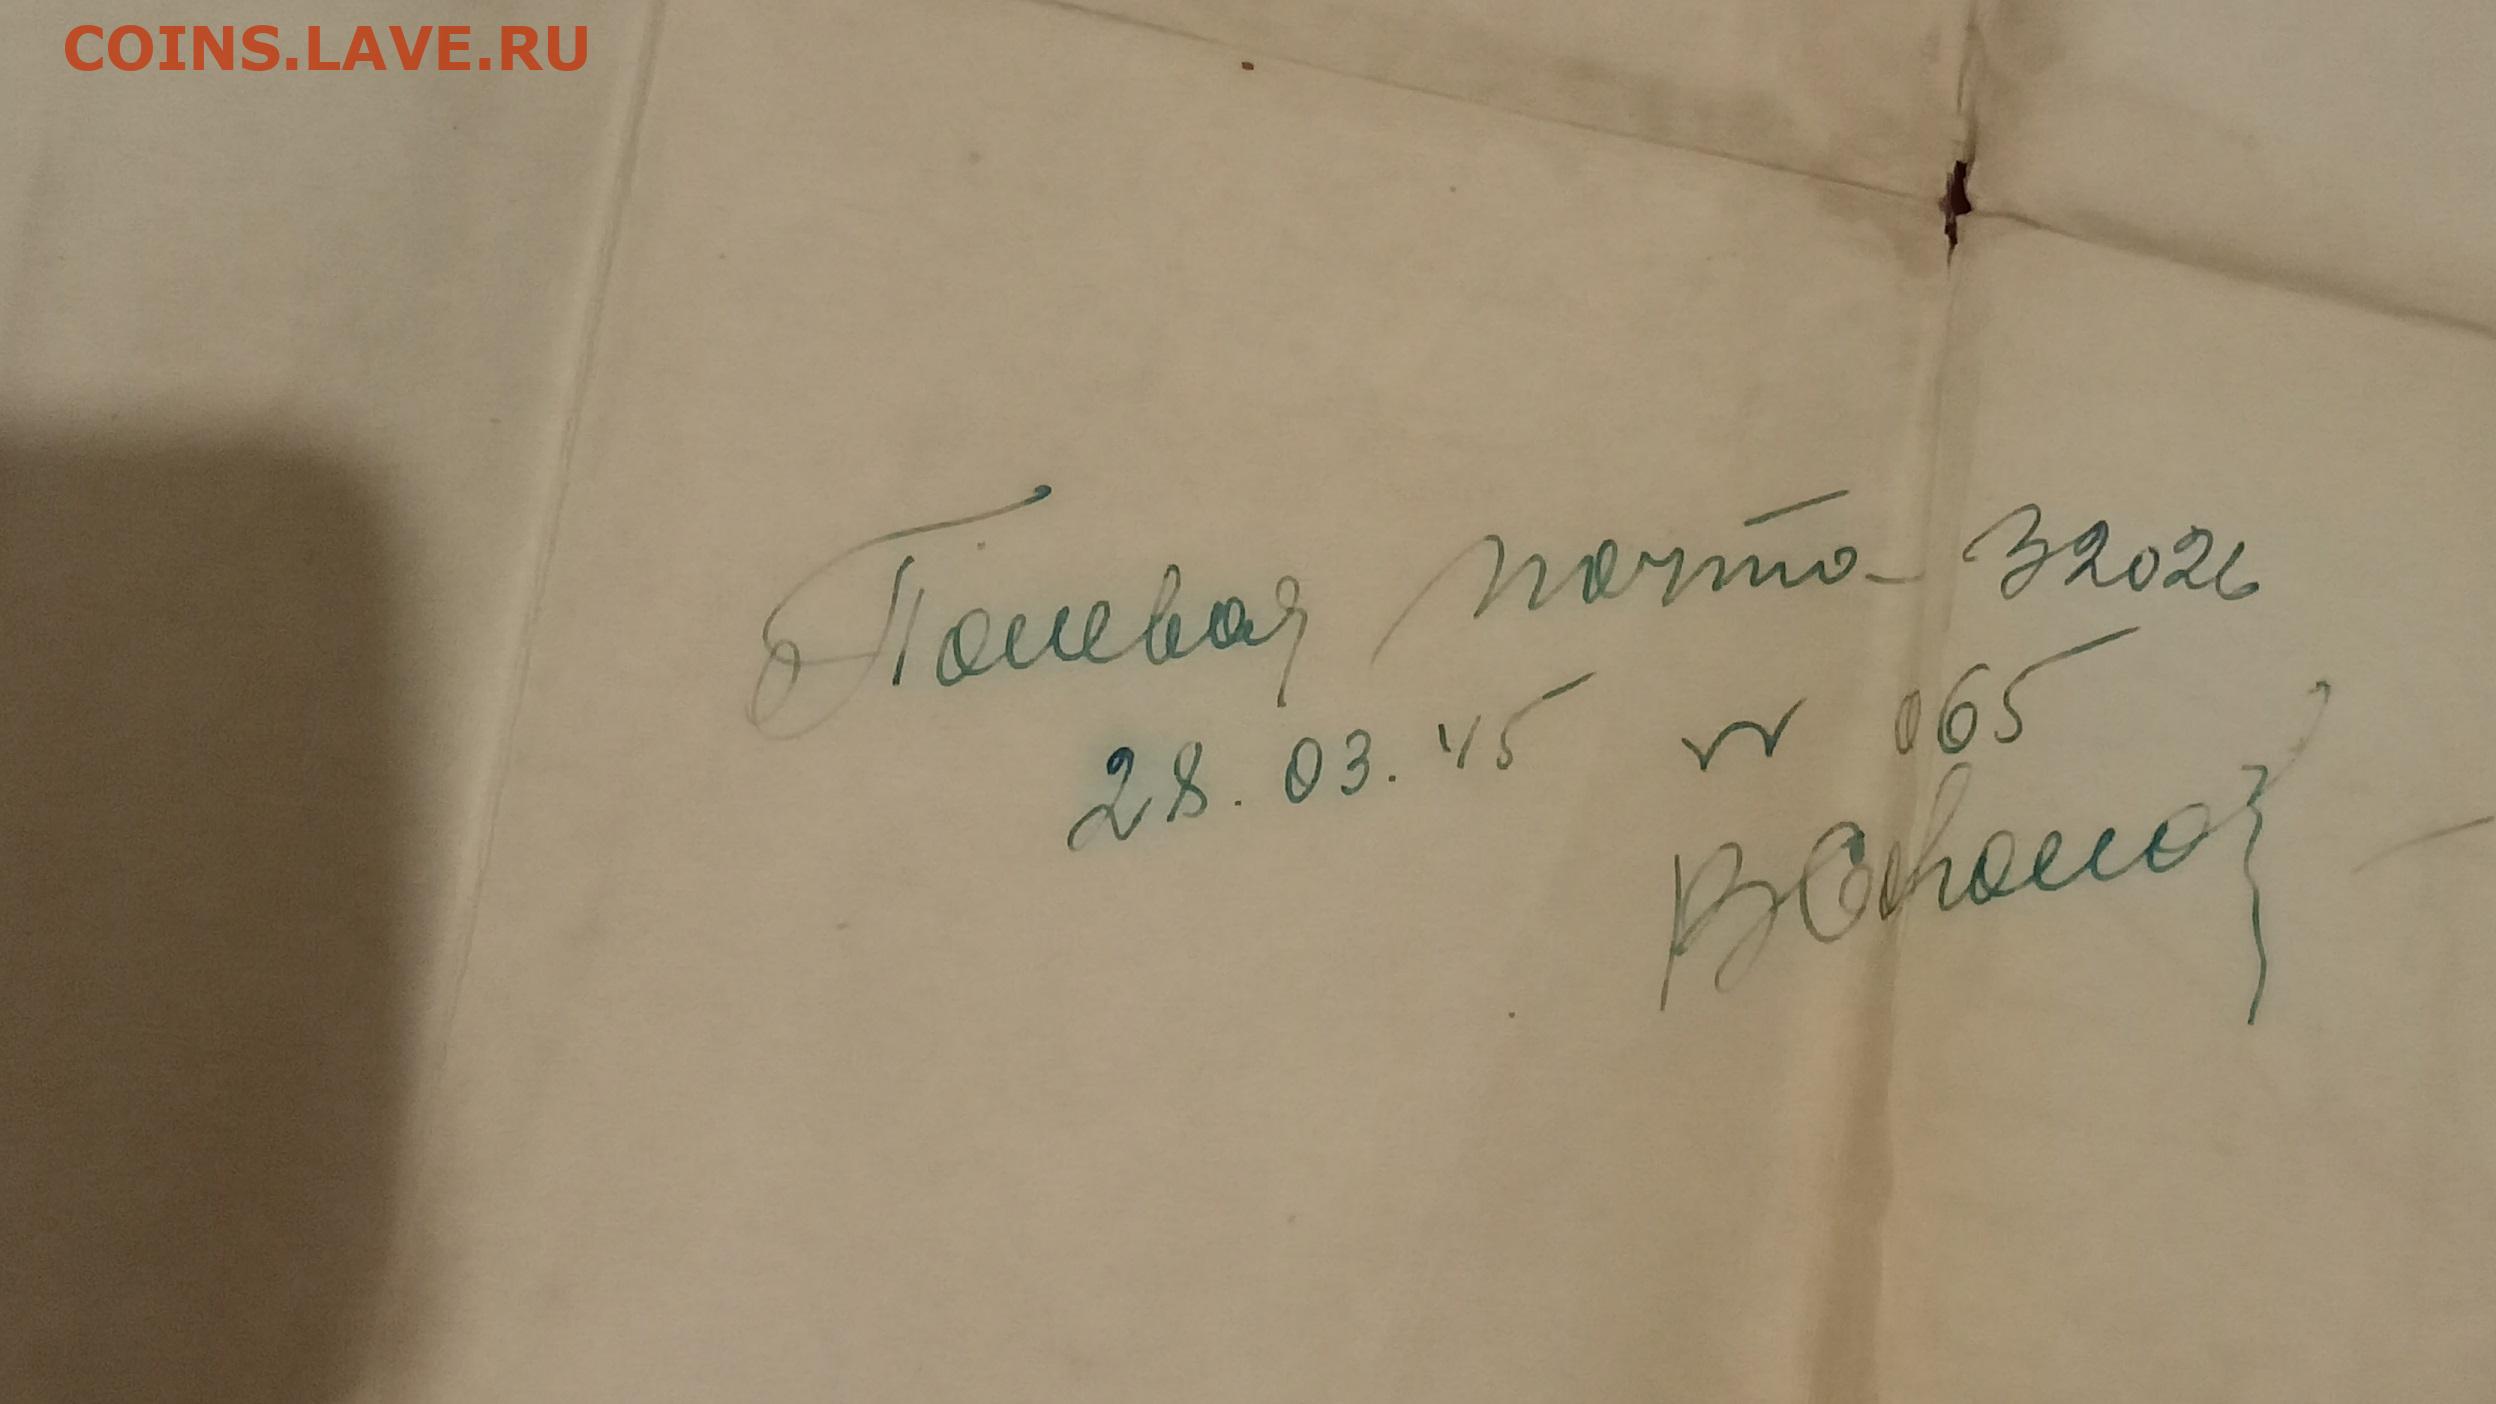 COINS.LAVE.RU
Полевая почта 32026
28.03.45 № 065